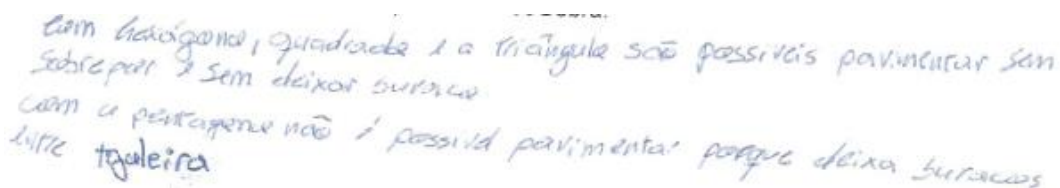 com hexágono, quadrado e a triângulo são possiveis pavimentar sem
sobrepor e sem deixar buraco
com o pentagono não é possivel pavimentar porque deixa buracos